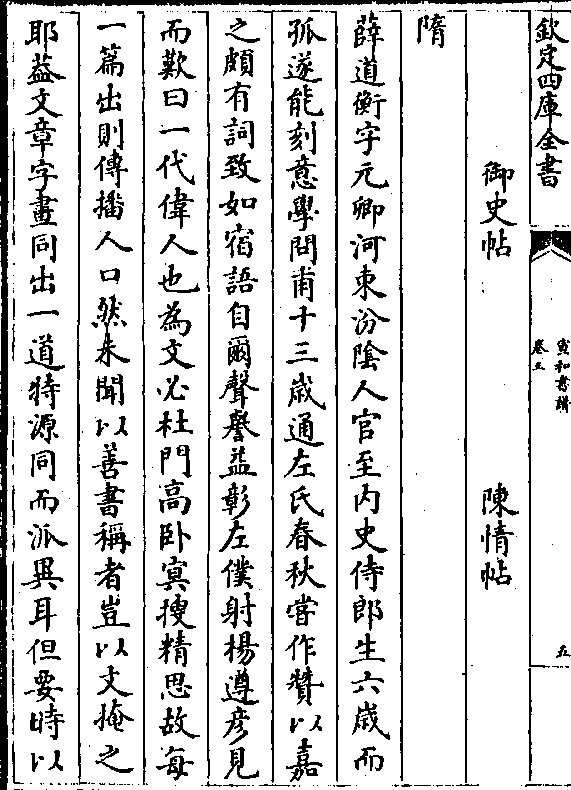 欽定四庫全書
宣和書譜
卷三
五
御史帖
陳情帖
隋
薛道衡字元卿河東汾陰人官至内史侍郎生六歲而
孤遂能刻意學問甫十三歲通左氏春秋嘗作贊以嘉
之頗有詞致如宿語自爾聲譽益彰左僕射楊遵彦見
而歎曰一代偉人也為文必杜門高卧㝠搜精思故每
一篇出則傳播人口然未聞以善書稱者豈以文掩之
耶葢文章字畫同出一道特源同而派異耳但要時以